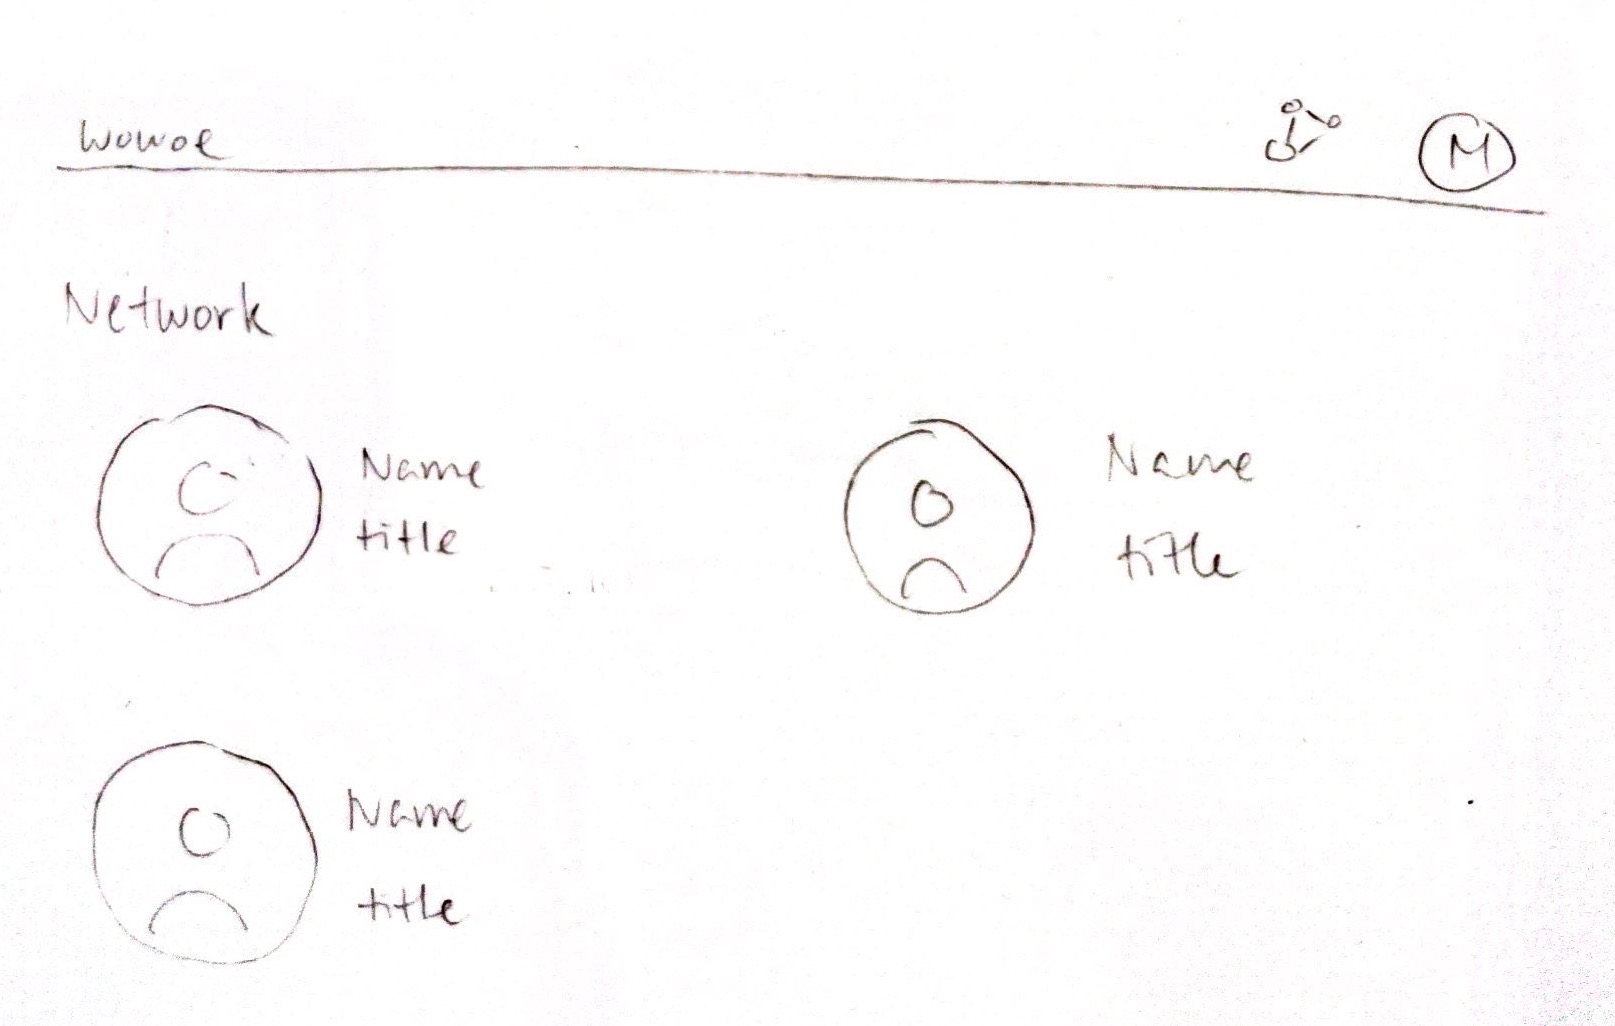 Wowoe
M
Network
Name
title
Name
title
Name
title